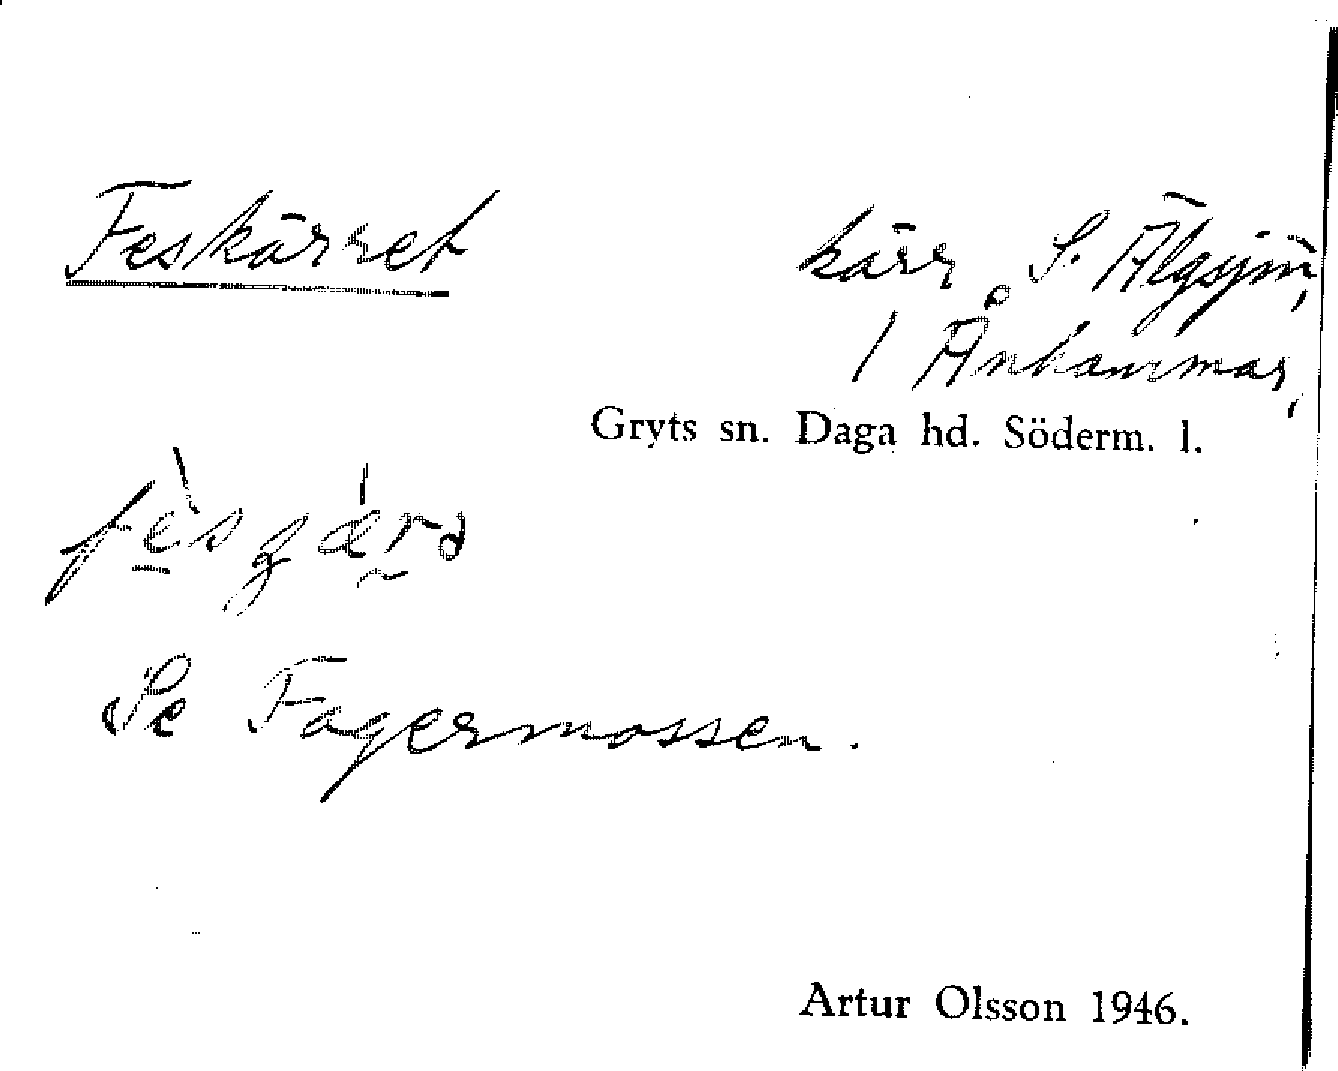 Feskärret
kärr, S. Älgsjön,
1 Ånhammar,
Gryts sn. Daga hd. Söderm. l.
fèsɡǽrə
Se Fagermossen.
Artur Olsson 1946.